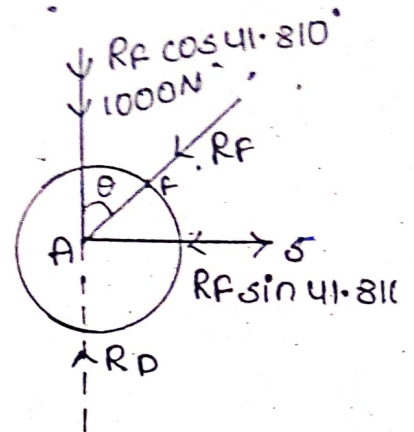 RF cos 41.810°
1000N
RF
θ
F
A
S
RF sin 41.81
RD